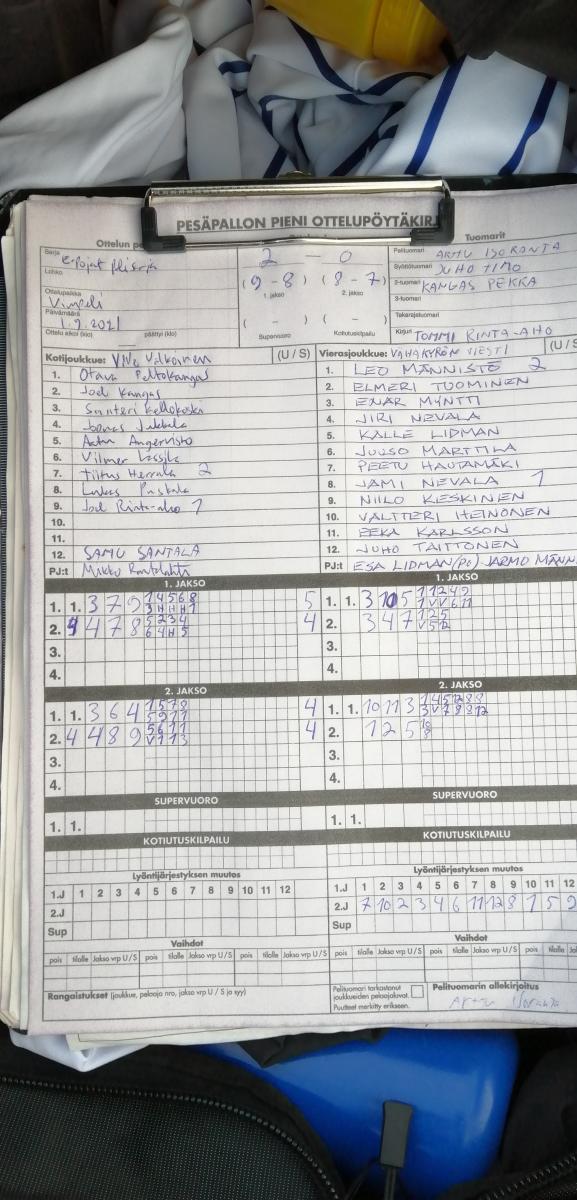 PESÄPALLON PIENI OTTELUPÖYTÄKIRJ
Ottelun
Tuomarit
Sarja
Lohko
Ottelupaikka
Vimpeli
Päivämäärä
1.9.2021
Ottelu alkoi (klo) päättyi (klo)
2 — 0
(9 - 8) (8 - 7)
1. jakso 2. jakso
( - ) ( - )
Supervuoro Kotiutuskilpailu
Pelituomari ARMU ISORANTA
Syöttötuomari JUHO TIMO
2-tuomari KANGAS PEKKA
3-tuomari
Takarajatuomari
Kirjuri TOMMI RINTA-AHO
Kotijoukkue: ViVe Valkoinen (U / S)
1. Otava Peltokangas
2. Joel Kangas
3. Santeri Kellokoski
4. Joonas
5. Aatu Angervisto
6. Vilmer Lassila
7. Tiitus Herrala 2
8. Lukas
9. Joel Rinta-aho 1
10.
11.
12. SAMU SANTALA
PJ:t Mikko Rantalahti
Vierasjoukkue: VÄHÄKYRÖN VIESTI (U / S
1. LEO MÄNNISTÖ 2
2. ELMERI TUOMINEN
3. EINAR MYNTTI
4. JIRI NEVALA
5. KALLE LIDMAN
6. JUUSO MARTTILA
7. PEETU HAUTAMÄKI
8. JAMI NEVALA 1
9. NIILO KESKINEN
10. VALTTERI HEINONEN
11. EEKA KARLSSON
12. JUHO TAITTONEN
PJ:t ESA LIDMAN (PJ) JARMO MÄNN
1. JAKSO
1. 1. 3 7 9 5
2. 4 4 7 8 4
3.
4.
1. JAKSO
1. 1. 3 10 5
2. 3 4 7
3.
4.
2. JAKSO
1. 1. 3 6 4 4
2. 4 4 8 9 4
3.
4.
2. JAKSO
1. 1. 10 11 3
2. 1 2 5
3.
4.
SUPERVUORO
1. 1.
SUPERVUORO
1. 1.
KOTIUTUSKILPAILU
KOTIUTUSKILPAILU
Lyöntijärjestyksen muutos
1.J 1 2 3 4 5 6 7 8 9 10 11 12
2.J
Sup
Lyöntijärjestyksen muutos
1.J 1 2 3 4 5 6 7 8 9 10 11 12
2.J 7 10 2 3 4 6 11 12 8 1 5 9
Sup
Vaihdot
pois tilalle Jakso vrp U / S pois tilalle Jakso vrp U / S
Vaihdot
pois tilalle Jakso vrp U / S pois tilalle Jakso vrp
Rangaistukset (joukkue, pelaaja nro, jakso vrp U / S ja syy)
Pelituomari tarkastanut
joukkueiden pelaajaluvat.
Puutteet merkitty erikseen.
Pelituomarin allekirjoitus